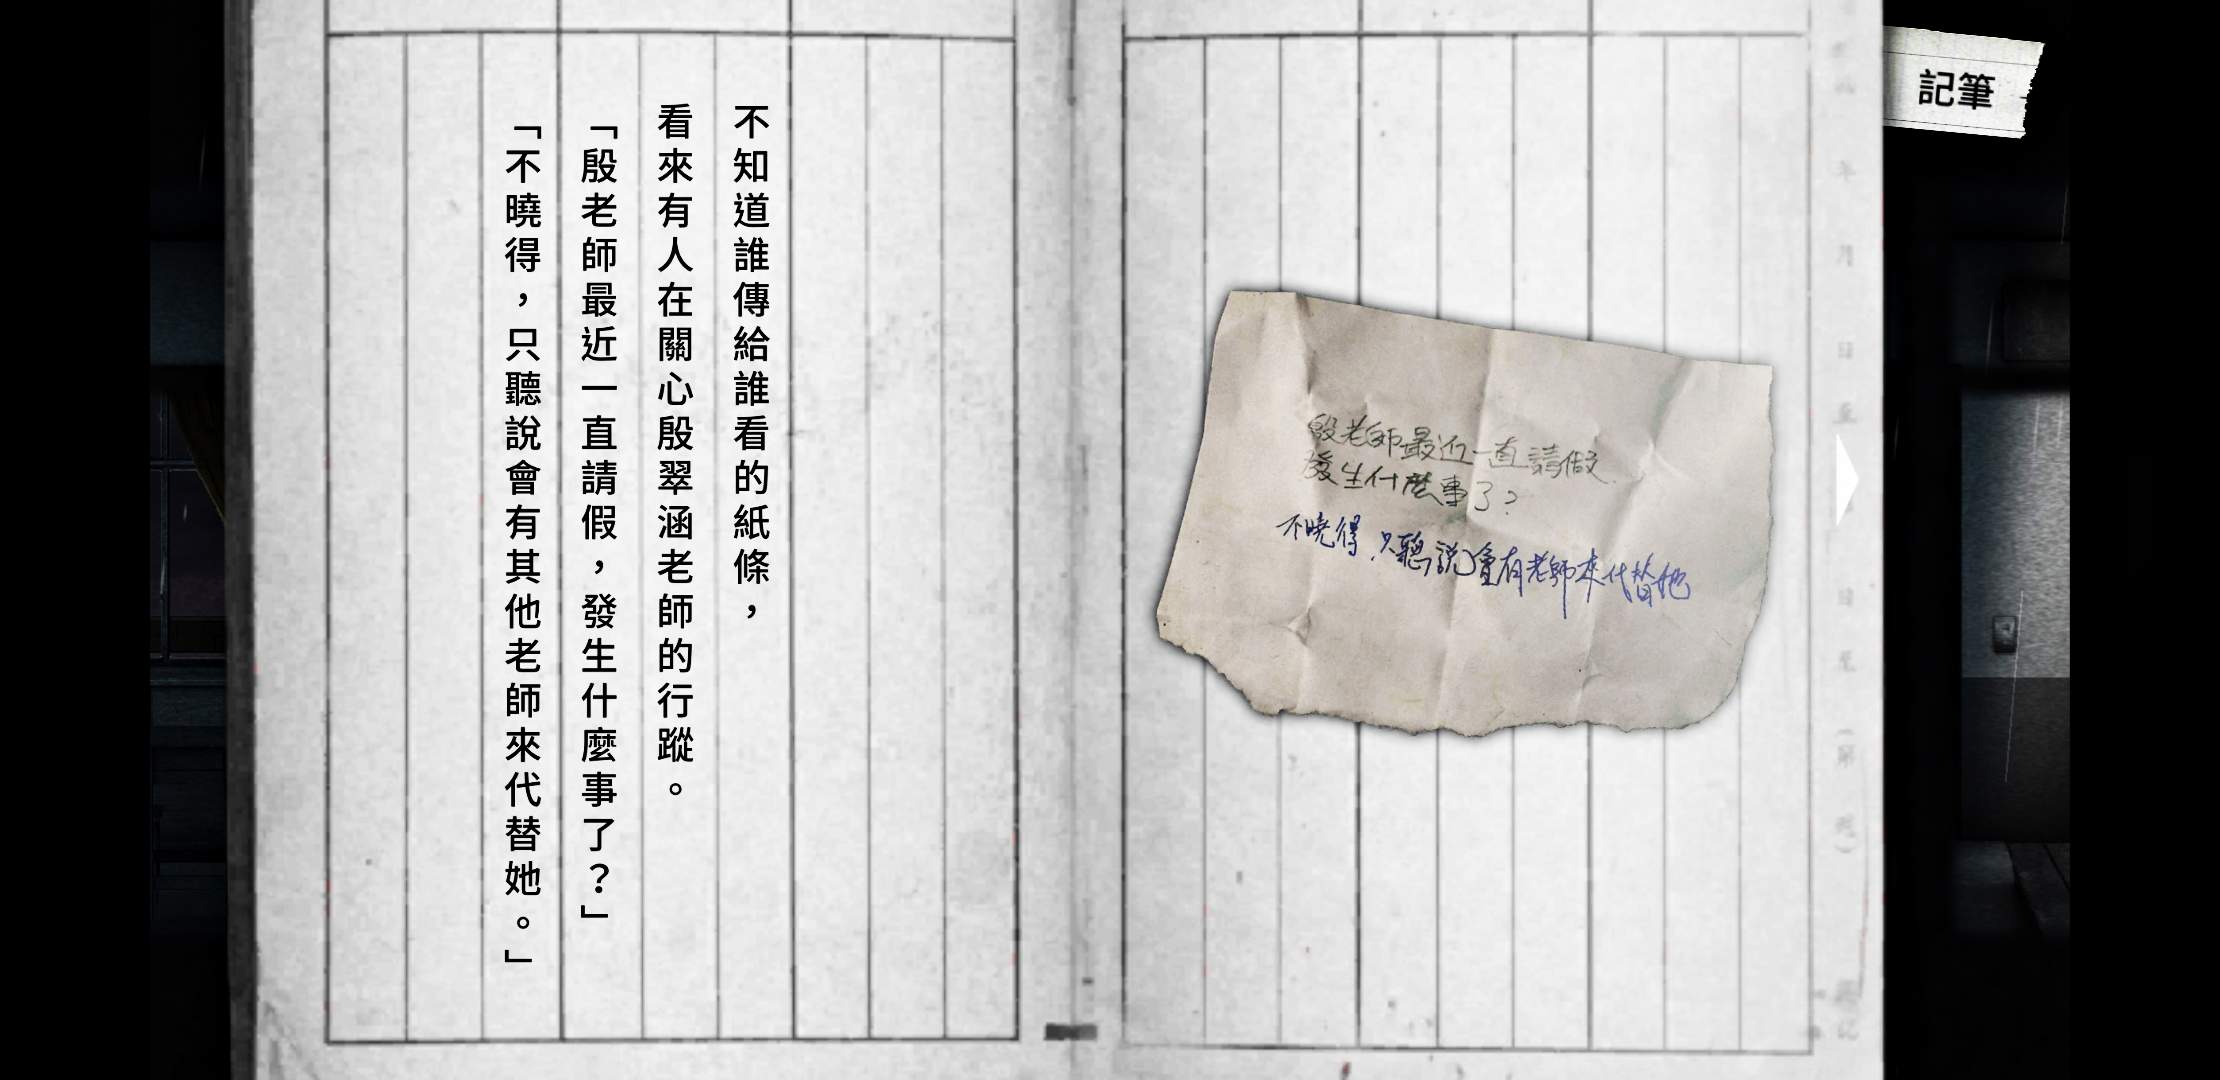 記筆
不知道誰傳給誰看的紙條，
看來有人在關心殷翠涵老師的行蹤。
「殷老師最近一直請假，發生什麼事了？」
「不曉得，只聽說會有其他老師來代替她。」
殷老師最近一直請假
發生什麼事了？
不曉得，只聽說會有老師來代替她